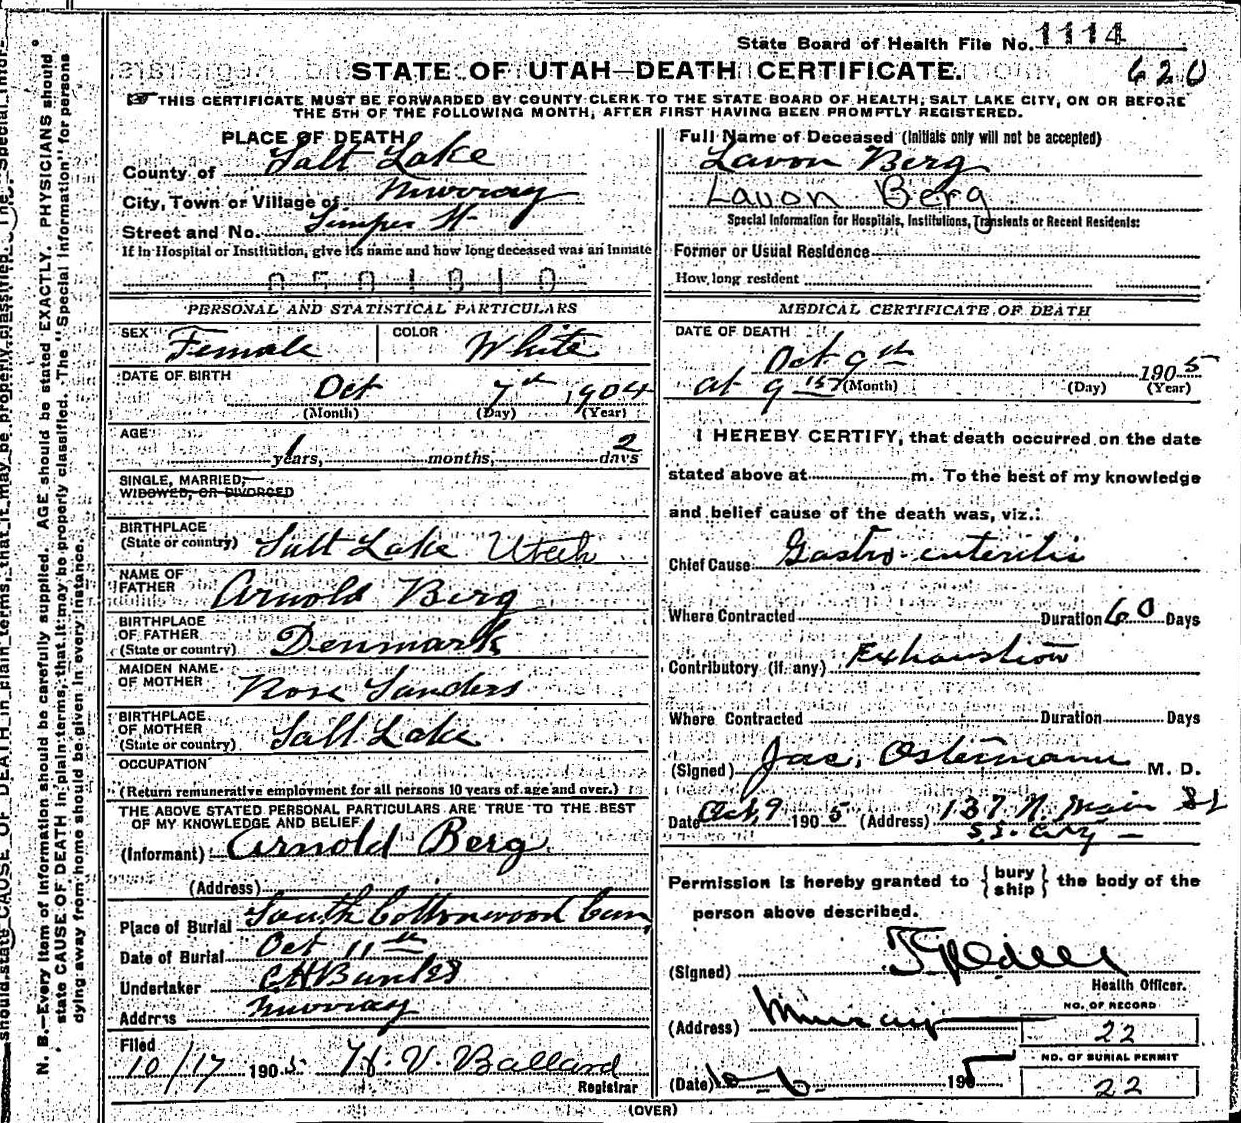 State Board of Health File No. 1114
620
STATE OF UTAH—DEATH CERTIFICATE.
THIS CERTIFICATE MUST BE FORWARDED BY COUNTY CLERK TO THE STATE BOARD OF HEALTH, SALT LAKE CITY, ON OR BEFORE
THE 5TH OF THE FOLLOWING MONTH, AFTER FIRST HAVING BEEN PROMPTLY REGISTERED.
PLACE OF DEATH
County of Salt Lake
City, Town or Village of Murray
Street and No. St
If in Hospital or Institution, give its name and how long deceased was an inmate
0501810
PERSONAL AND STATISTICAL PARTICULARS
SEX Female COLOR White
DATE OF BIRTH
Oct 7th 1904
(Month) (Day) (Year)
AGE
1 years, months, 2 days
SINGLE, MARRIED,
WIDOWED, OR DIVORCED
BIRTHPLACE
(State or country) Salt Lake Utah
NAME OF
FATHER Arnold Berg
BIRTHPLACE
OF FATHER
(State or country) Denmark
MAIDEN NAME
OF MOTHER Rose Sanders
BIRTHPLACE
OF MOTHER
(State or country) Salt Lake
OCCUPATION
(Return remunerative employment for all persons 10 years of age and over.)
THE ABOVE STATED PERSONAL PARTICULARS ARE TRUE TO THE BEST
OF MY KNOWLEDGE AND BELIEF
(Informant) Arnold Berg
(Address)
Place of Burial South Cottonwood Cem
Date of Burial Oct 11th
Undertaker
Address Murray
Filed
10/17 1905 H. V. Ballard
Registrar
Full Name of Deceased (Initials only will not be accepted)
Lavon Berg
Lavon Berg
Special Information for Hospitals, Institutions, Transients or Recent Residents:
Former or Usual Residence
How long resident
MEDICAL CERTIFICATE OF DEATH
DATE OF DEATH
Oct 9th 1905
at 9 15 (Month) (Day) (Year)
I HEREBY CERTIFY, that death occurred on the date
stated above at m. To the best of my knowledge
and belief cause of the death was, viz.:
Chief Cause Gastro-enteritis
Where Contracted Duration 60 Days
Contributory (if any) Exhaustion
Where Contracted Duration Days
(Signed) Jac. Ostermann M. D.
Date Oct 9 1905 (Address) 137 N. Main St
S. L. City
Permission is hereby granted to {bury ship} the body of the
person above described.
(Signed)
Health Officer.
(Address) Murray
NO. OF RECORD
22
NO. OF BURIAL PERMIT
22
(Date) 10-6- 1905
(OVER)
N. B.—Every item of information should be carefully supplied. AGE should be stated EXACTLY. PHYSICIANS should
state CAUSE OF DEATH in plain terms, that it may be properly classified. The "Special Information" for persons
dying away from home should be given in every instance.
should state CAUSE OF DEATH in plain terms, that it may be properly classified